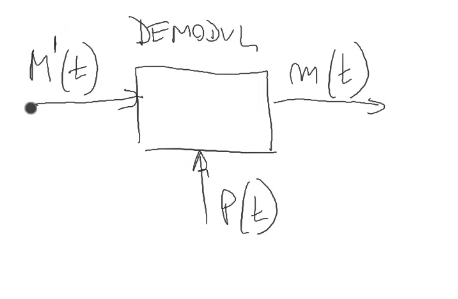 DEMODUL
M'(t)
m(t)
P(t)